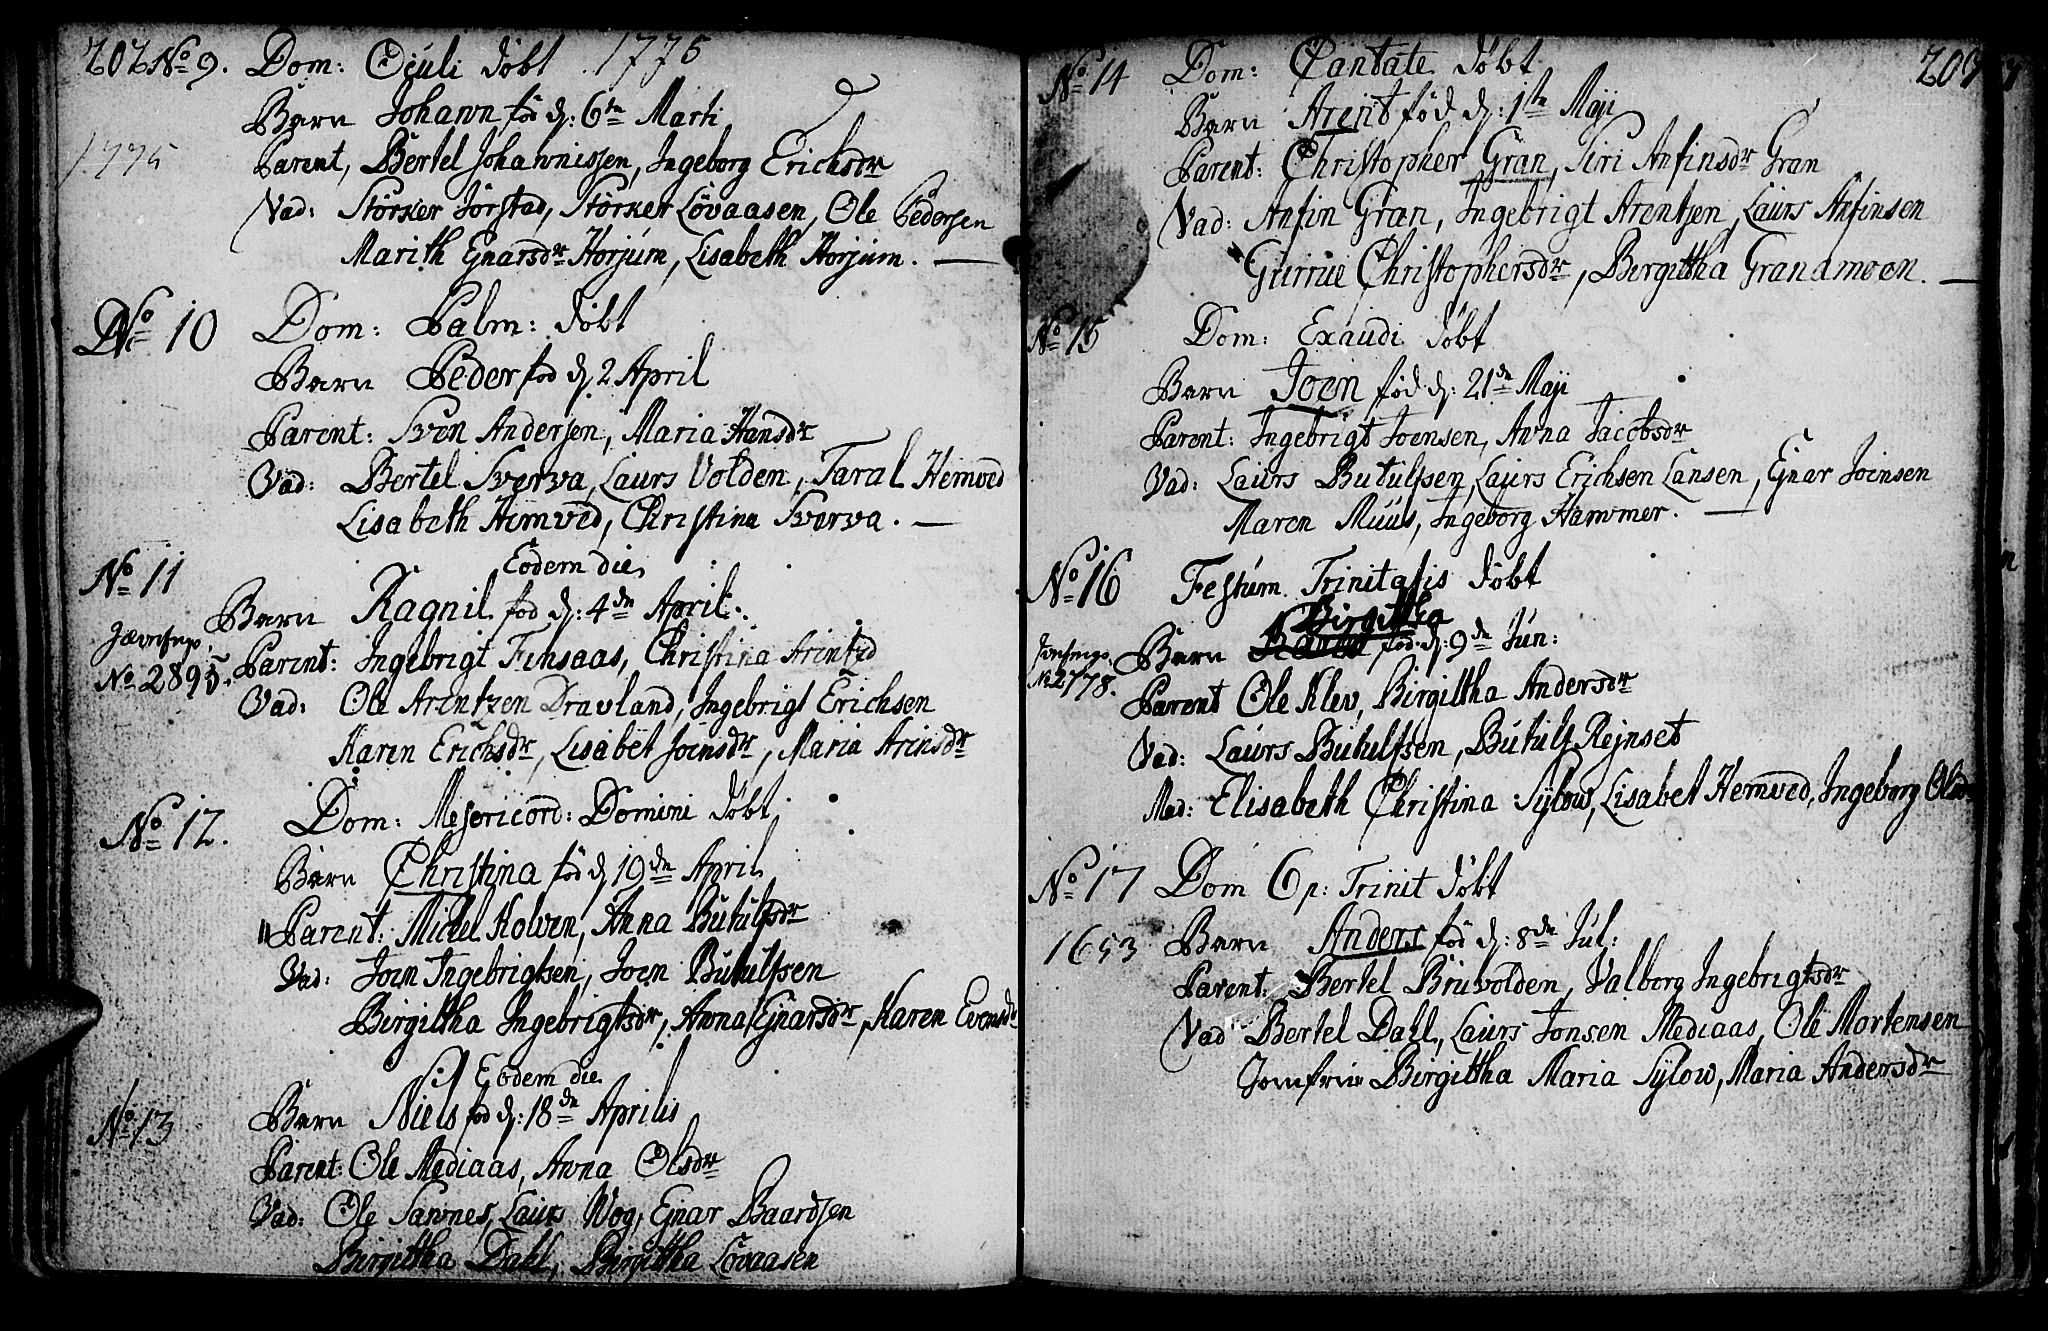 202 No 9. Dom: Oculi döbt 1775
Barn Johann föd d: 6te Marti
1775
Parent, Bertel Johannissen, Ingeborg Erichsdr
Vad: Störker Jörstad, Störker Lövaasen, Ole Pedersen
Marith Ejnarsdr Horjum, Lisabeth Horjum. —
No 10 Dom: Palm: döbt
Barn Peder föd d 2 April
Parent: Sven Andersen, Maria Hansdr
Vad: Bertel Sverva, Laurs Volden, Taral Hemved
Lisabeth Hemved, Christina Sverva. —
No 11 Eodem die
Barn Ragnil föd d: 4de April.
No 2895.
Parent: Ingebrigt Finsaas, Christina Arintzd
Vad: Ole Arentzen Dravland, Ingebrigt Erichsen
Karen Erichsdr, Lisabet Joensdr, Maria Arinsdr
No 12. Dom: Mesericord: Domini döbt
Barn Christina föd d 19de April
Parent: Michel Kolven, Anna Butulfsdr
Vad: Joen Ingebrigtsen, Joen Butulfsen
Birgittha Ingebrigtsdr, Anna Ejnarsdr, Karen Evensdr
Eodem die
No 13 Barn Niels föd d: 18de Aprilis
Parent: Ole Mediaas, Anna Olsdr
Vad: Ole Sannes, Laurs Wog, Ejnar Baardsen
Birgittha Dahl, Birgittha Lövaasen
209
No 14 Dom: Cantate döbt
Barn Arent föd d: 1ste Maji
Parent: Christopher Gran, Siri Anfinsdr Gran
Vad: Anfin Gran, Ingebrigt Arentzen, Laurs Anfinsen
Gurrue Christophersdr, Birgittha Granamoen. —
No 15 Dom: Exaudi döbt
Barn Joen föd d: 21de Maji
Parent: Ingebrigt Joensen, Anna Jacobsdr
Vad: Laurs Butulfsen, Laurs Erichsen Lansen, Ejnar Joensen
Maren Muus, Ingeborg Hammer. —
No 16 Festum Trinitatis döbt
Birgittha
Barn föd d: 9de Jun:
No 2778.
Parent Ole Klev, Birgittha Andersdr
Vad: Laurs Butulfsen, Butulf Rejnset
Mad: Elisabeth Christina Sylow, Lisabet Hemved, Ingeborg Olsdr
No 17 Dom 6 p: Trinit döbt
1653 Barn Anders föd d: 8de Jul:
Parent: Bertel Bruvolden, Valborg Ingebrigtsdr
Vad Bertel Dahl, Laurs Jonsen Mediaas, Ole Mortensen
Jomfrue Birgittha Maria Sylow, Maria Andersdr